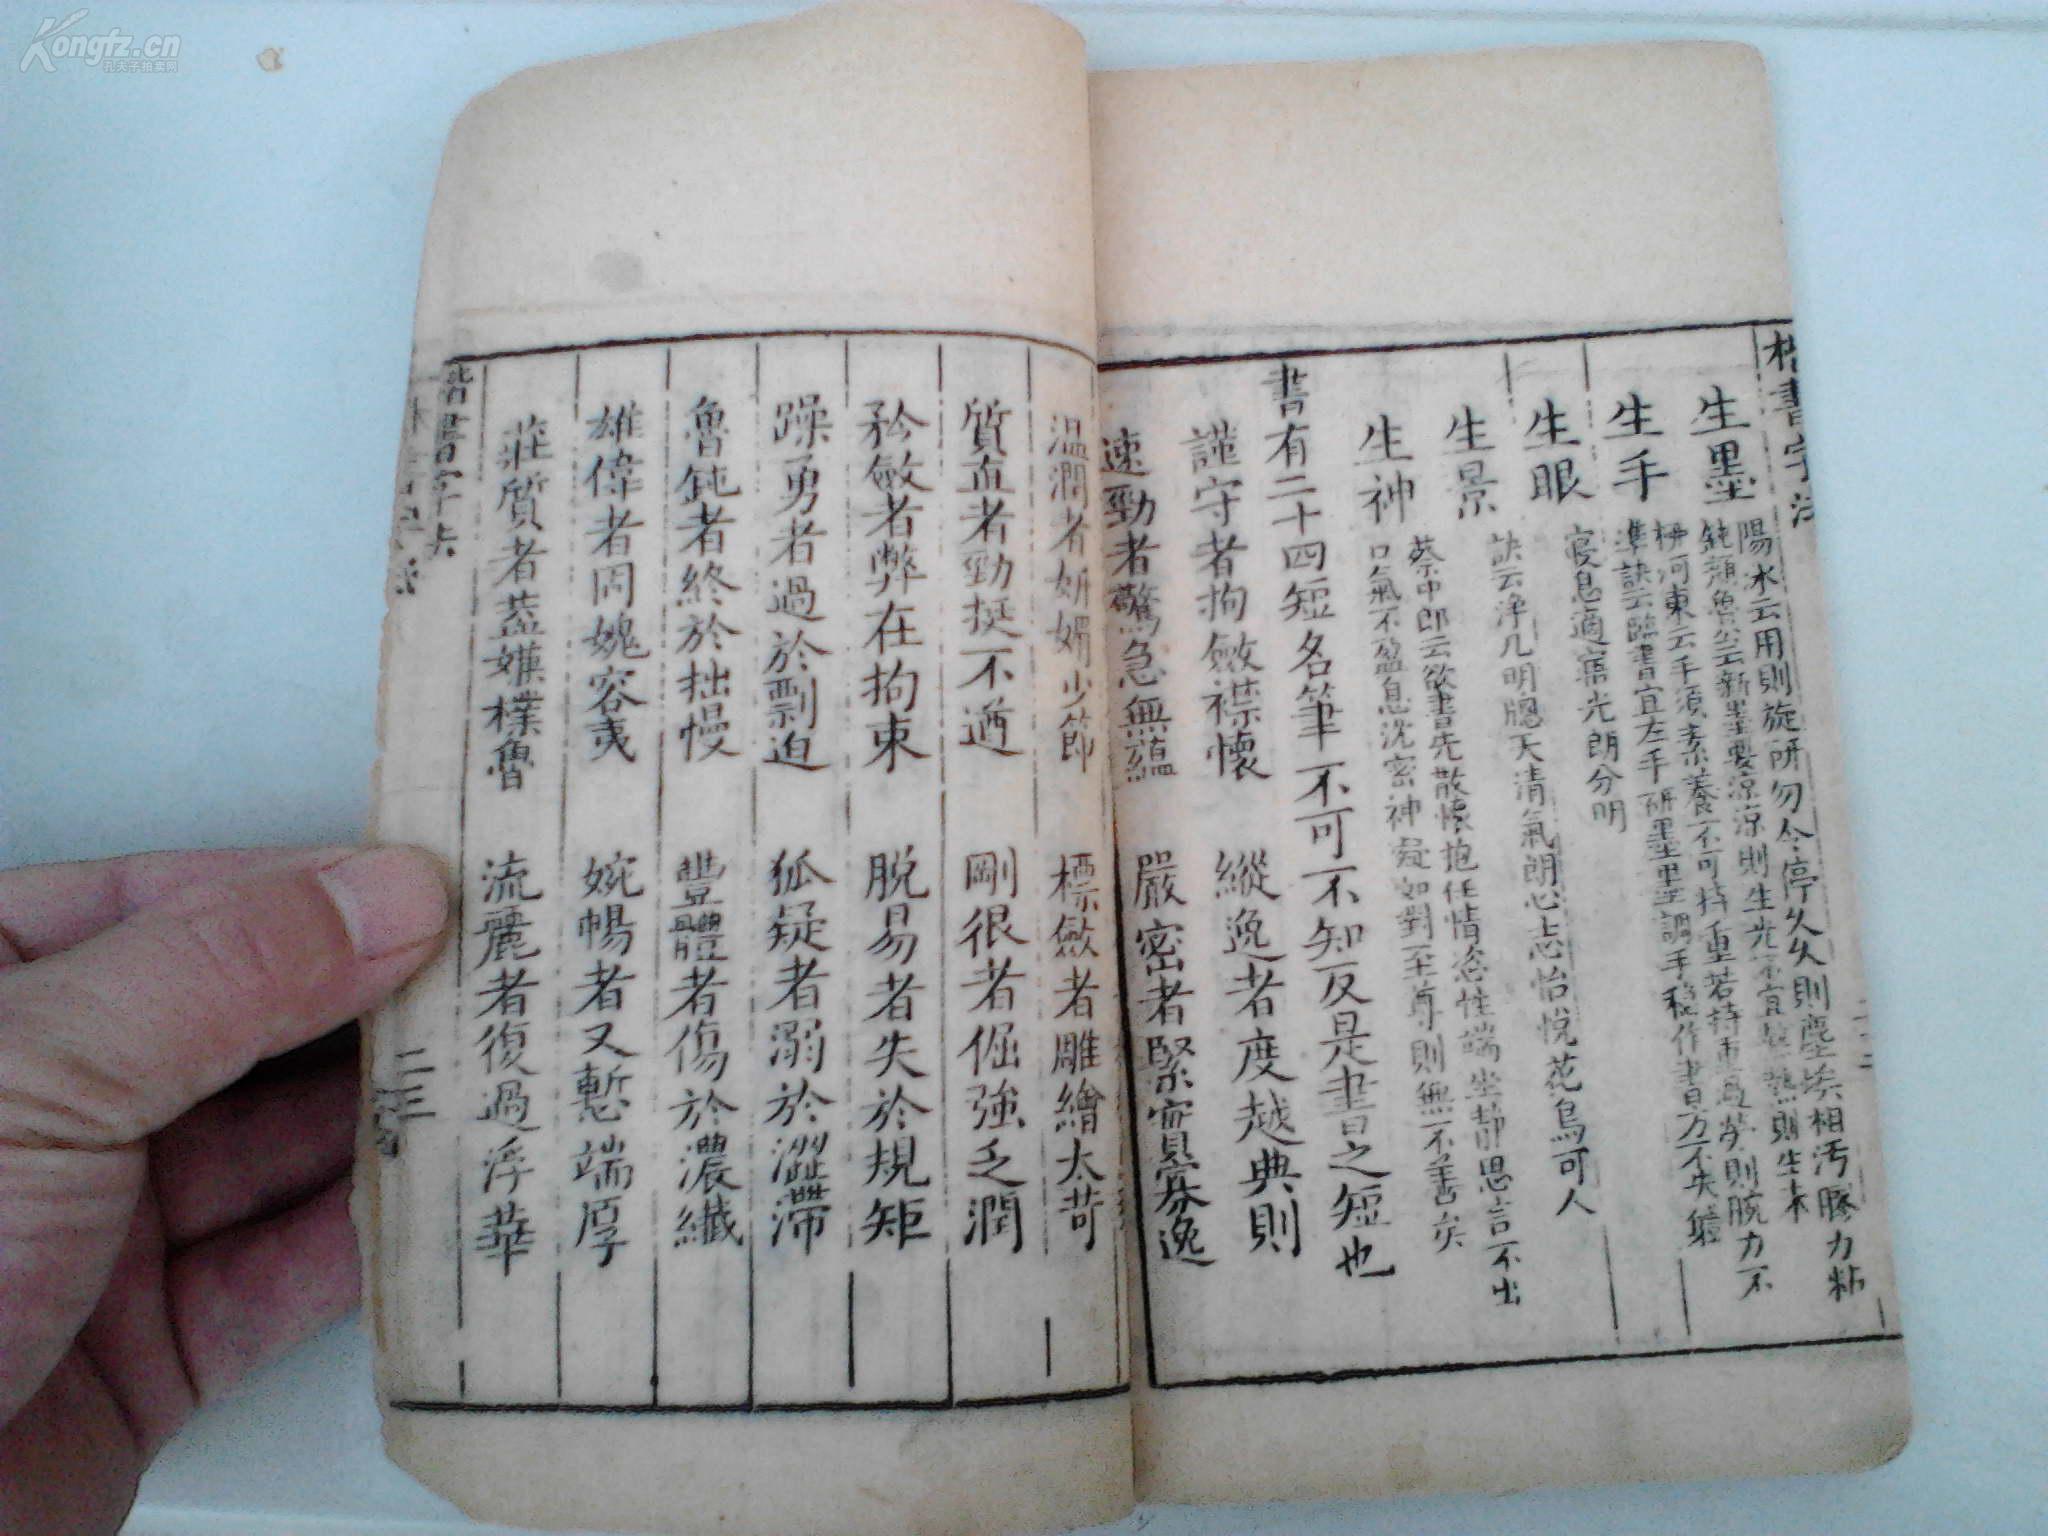 Kongfz.cn
孔夫子拍卖网
楷書字法
生墨
陽冰云用則旋研勿令停久久則塵埃相汚膠力粘
鈍顏魯公云新墨要涼涼則生光不宜熱熱則生沫
生手
栁河東云手須素養不可持重若持重過勞則腕力不
準訣云臨書宜左手研墨墨調手穩作書員方不失體
生眼
寝息適寤光朗分明
生景
訣云淨几明牕天清氣朗心志怡悅花鳥可人
生神
蔡中郎云欲書先散懷抱任情恣性端坐靜思言不出
口氣不盈息沈密神凝如對至尊則無不善矣
書有二十四短名筆不可不知反是書之短也
謹守者拘斂襟懷 縱逸者度越典則
速勁者驚急無蘊 嚴密者緊密寡逸
温潤者妍媚少節 標斂者雕繪太苛
質直者勁挺不遒 剛很者倔強乏潤
矜敏者弊在拘束 脱易者失於規矩
躁勇者過於剽迫 狐疑者溺於澀滯
魯鈍者終於拙慢 豐體者傷於濃纖
雄偉者固媿容夷 婉暢者又慙端厚
莊質者葢嫌樸魯 流麗者復過浮華
楷書字法
二三